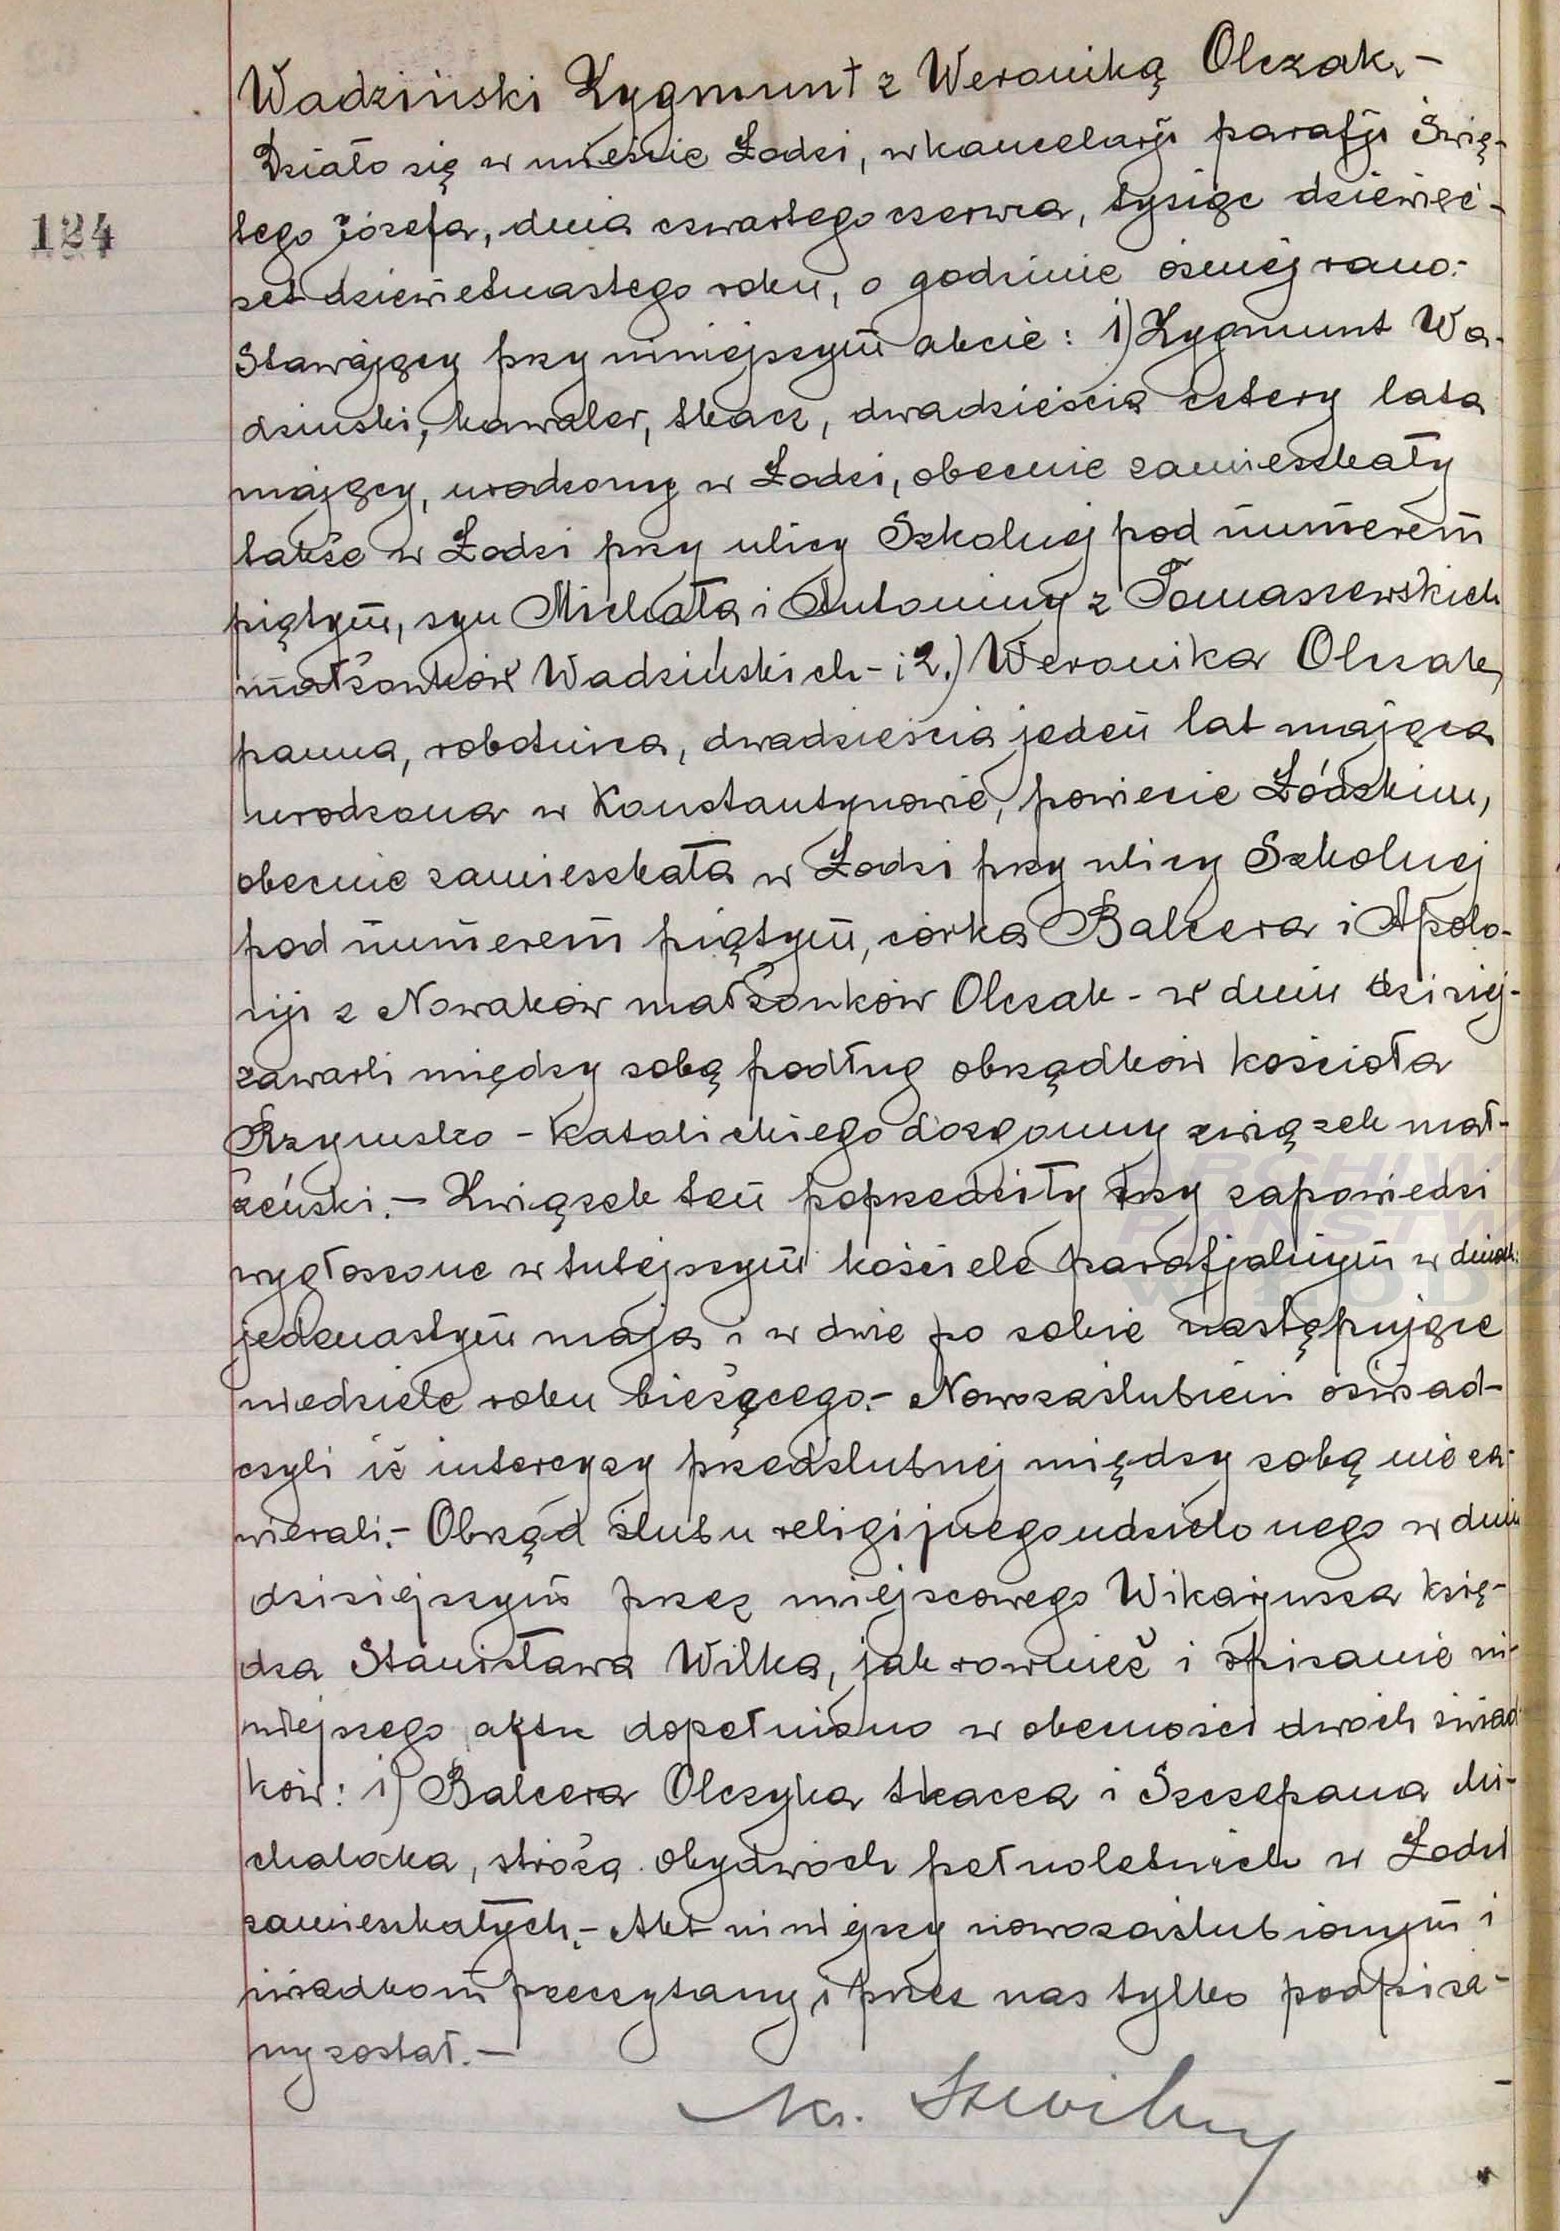 Wadziński Zygmunt z Weroniką Olczak.-
Działo się w mieście Łodzi, w kancelarji parafji Świę-
124
tego Józefa, dnia czwartego czerwca, tysiąc dziewięć-
set dziewiętnastego roku, o godzinie ósmej rano.-
Stawający przy niniejszym akcie: 1) Zygmunt Wa-
dziński, kawaler, tkacz, dwadzieścia cztery lata
mający, urodzony w Łodzi, obecnie zamieszkały
także w Łodzi przy ulicy Szkolnej pod numerem
piątym, syn Michała i Antoniny z Tomaszewskich
małżonków Wadzińskich - i 2.) Weronika Olczak,
panna, robotnica, dwadzieścia jeden lat mająca
urodzona w Konstantynowie, powiecie Łódzkim,
obecnie zamieszkała w Łodzi przy ulicy Szkolnej
pod numerem piątym, córka Balcera i Apolo-
nji z Nowaków małżonków Olczak - w dniu dzisiej-
zawarli między sobą podług obrządków kościoła
Rzymsko - Katolickiego dozgonny związek mał-
żeński. - Związek ten poprzedziły trzy zapowiedzi
wygłoszone w tutejszym kościele parafjalnym w dniach:
jedenastym maja i w dwie po sobie następujące
niedziele roku bieżącego.- Nowozaślubieni oświad-
czyli iż intercyzy przedślubnej między sobą nie za-
wierali.- Obrząd ślubu religijnego udzielonego w dniu
dzisiejszym przez miejscowego Wikarjusza księ-
dza Stanisława Wilka, jak również i spisanie ni-
niejszego aktu dopełniono w obecności dwóch świad
ków: 1) Balcera Olczyka tkacza i Szczepana Mi-
chalaka, stróża obydwóch pełnoletnich w Łodzi
zamieszkałych.- Akt niniejszy nowozaślubionym i
świadkom przeczytany i przez nas tylko podpisa-
ny został.-
Ks.
ARCHIWU
PAŃSTWO
W ŁODZ